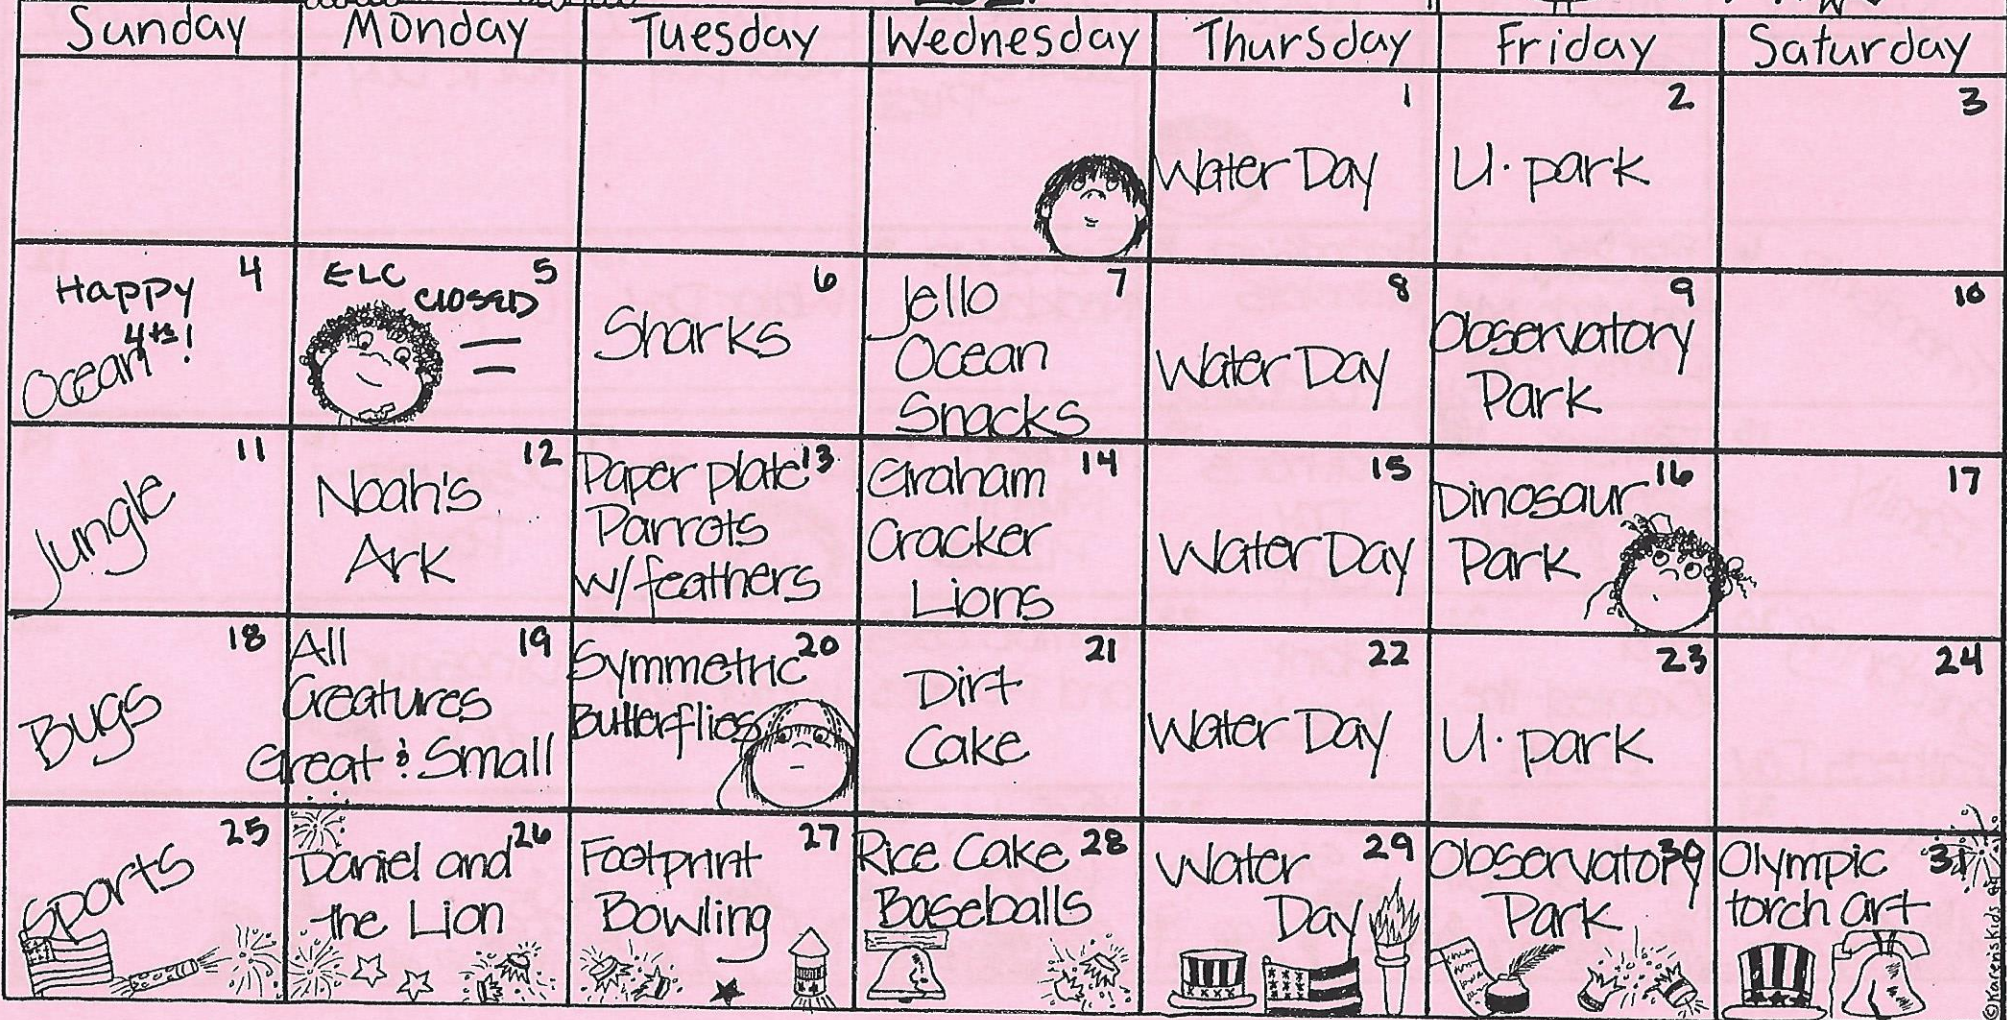 Sunday Monday Tuesday Wednesday Thursday Friday Saturday
1 2 3
Water Day
U. park
4
Happy
4th!
Ocean
5
ELC
CLOSED
6
Sharks
7
Jello
Ocean
Snacks
8
Water Day
9
Observatory
Park
10
11
Jungle
12
Noah's
Ark
13
Paper plate
Parrots
w/feathers
14
Graham
Cracker
Lions
15
Water Day
16
Dinosaur
Park
17
18
Bugs
19
All
Creatures
Great & Small
20
Symmetric
Butterflies
21
Dirt
Cake
22
Water Day
23
U. park
24
25
Sports
26
Daniel and
the Lion
27
Footprint
Bowling
28
Rice Cake
Baseballs
29
Water
Day
30
Observatory
Park
31
Olympic
torch art
©Karen's Kids